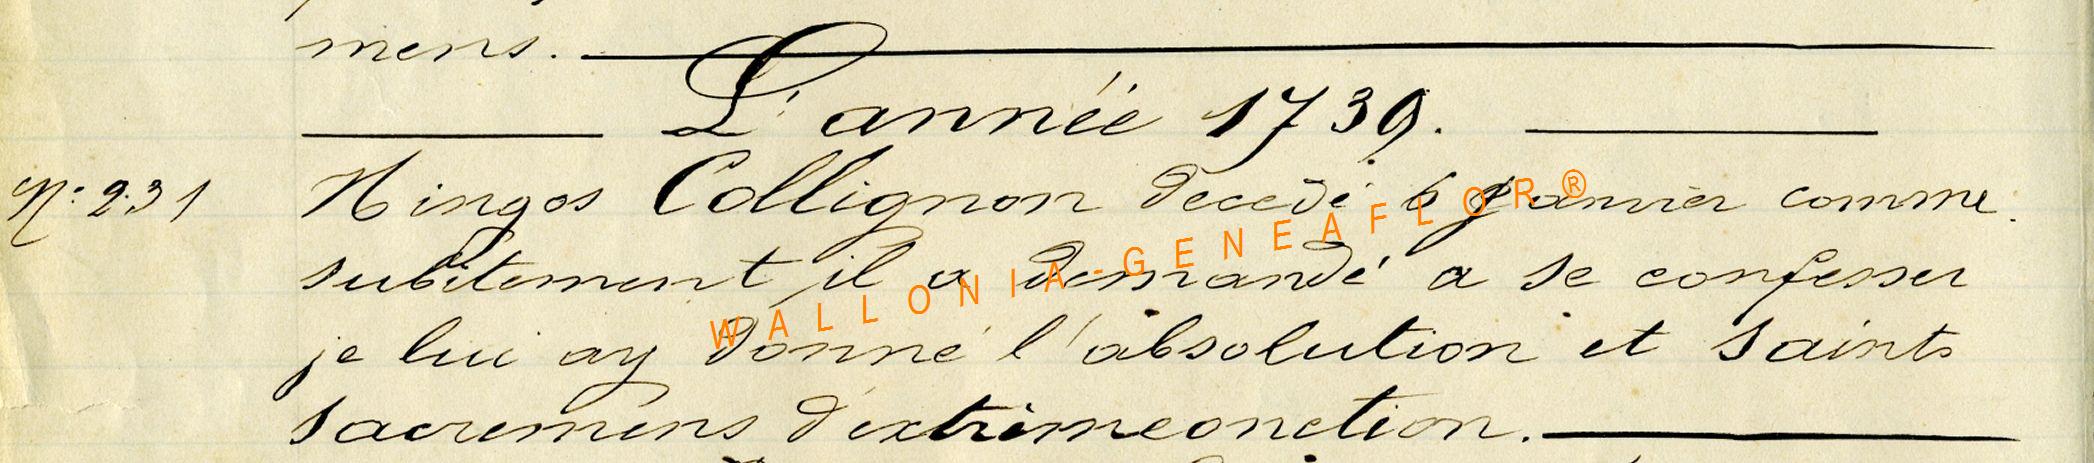 mens.
L'année 1739.
N: 231 Hingos Collignon decedé 6 Janvier comme
subitement il a demandé a se confesser
je lui ay donné l'absolution et saints
sacremens d'extrémeonction.
WALLONIA-GENEAFLOR®